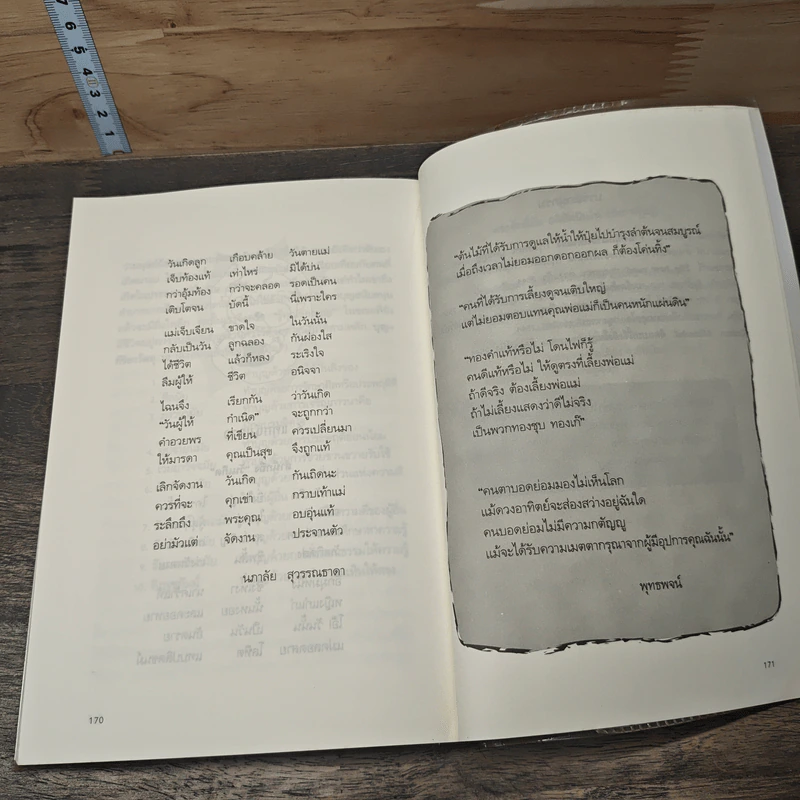 7 6 5 4 3 2 1
วันเกิดลูก เกือบคล้าย วันตายแม่
เจ็บท้องแท้ เท่าไหร่ มิได้บ่น
กว่าอุ้มท้อง กว่าจะคลอด รอดเป็นคน
เติบโตจน บัดนี้ นี่เพราะใคร
แม่เจ็บเจียน ขาดใจ ในวันนั้น
กลับเป็นวัน ลูกฉลอง กันผ่องใส
ได้ชีวิต แล้วก็หลง ระเริงใจ
ลืมผู้ให้ ชีวิต อนิจจา
ไฉนจึง เรียกกัน ว่าวันเกิด
"วันผู้ให้ กำเนิด" จะถูกกว่า
คำอวยพร ที่เขียน ควรเปลี่ยนมา
ให้มารดา คุณเป็นสุข จึงถูกแท้
เลิกจัดงาน วันเกิด กันเถิดนะ
ควรที่จะ คุกเข่า กราบเท้าแม่
ระลึกถึง พระคุณ อบอุ่นแท้
อย่ามัวแต่ จัดงาน ประจานตัว
นภาลัย สุวรรณธาดา
170
"ต้นไม้ที่ได้รับการดูแลให้น้ำให้ปุ๋ยไปบำรุงลำต้นจนสมบูรณ์
เมื่อถึงเวลาไม่ยอมออกดอกออกผล ก็ต้องโค่นทิ้ง"
"คนที่ได้รับการเลี้ยงดูจนเติบใหญ่
แต่ไม่ยอมตอบแทนคุณพ่อแม่ก็เป็นคนหนักแผ่นดิน"
"ทองคำแท้หรือไม่ โดนไฟก็รู้
คนดีแท้หรือไม่ ให้ดูตรงที่เลี้ยงพ่อแม่
ถ้าดีจริง ต้องเลี้ยงพ่อแม่
ถ้าไม่เลี้ยงแสดงว่าดีไม่จริง
เป็นพวกทองชุบ ทองเก๊"
"คนตาบอดย่อมมองไม่เห็นโลก
แม้ดวงอาทิตย์จะส่องสว่างอยู่ฉันใด
คนบอดย่อมไม่มีความกตัญญู
แม้จะได้รับความเมตตากรุณาจากผู้มีอุปการคุณฉันนั้น"
พุทธพจน์
171